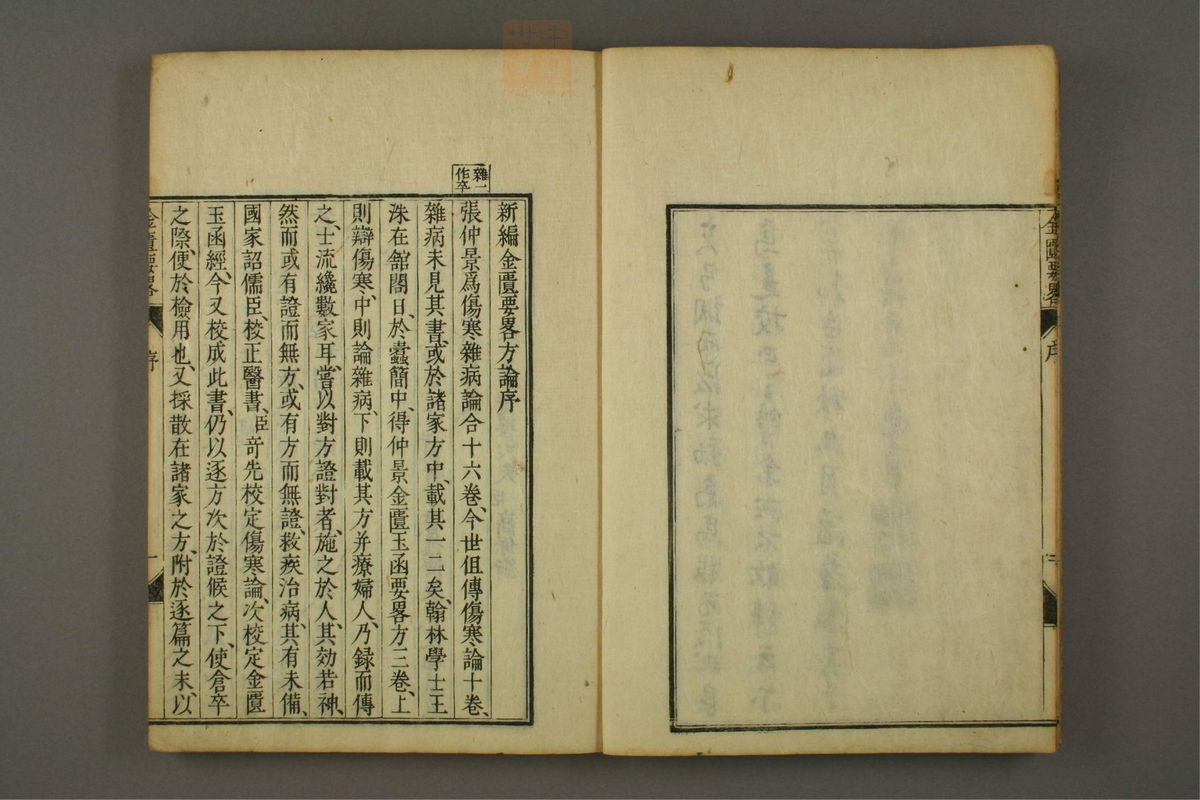 金匱要畧
序
二
雜一
作卒
新編金匱要畧方論序
張仲景爲傷寒雜病論合十六卷、今世但傳傷寒論十卷、
雜病未見其書、或於諸家方中、載其一二矣、翰林學士王
洙在舘閣日、於蠹簡中、得仲景金匱玉函要畧方三卷、上
則辯傷寒、中則論雜病、下則載其方并療婦人、乃録而傳
之、士流纔數家耳、嘗以對方證對者、施之於人、其効若神、
然而或有證而無方、或有方而無證、救疾治病、其有未備、
國家詔儒臣、校正醫書、臣竒先校定傷寒論、次校定金匱
玉函經、今又校成此書、仍以逐方次於證候之下、使倉卒
之際、便於檢用也、又採散在諸家之方、附於逐篇之末、以
金匱要畧
序
一